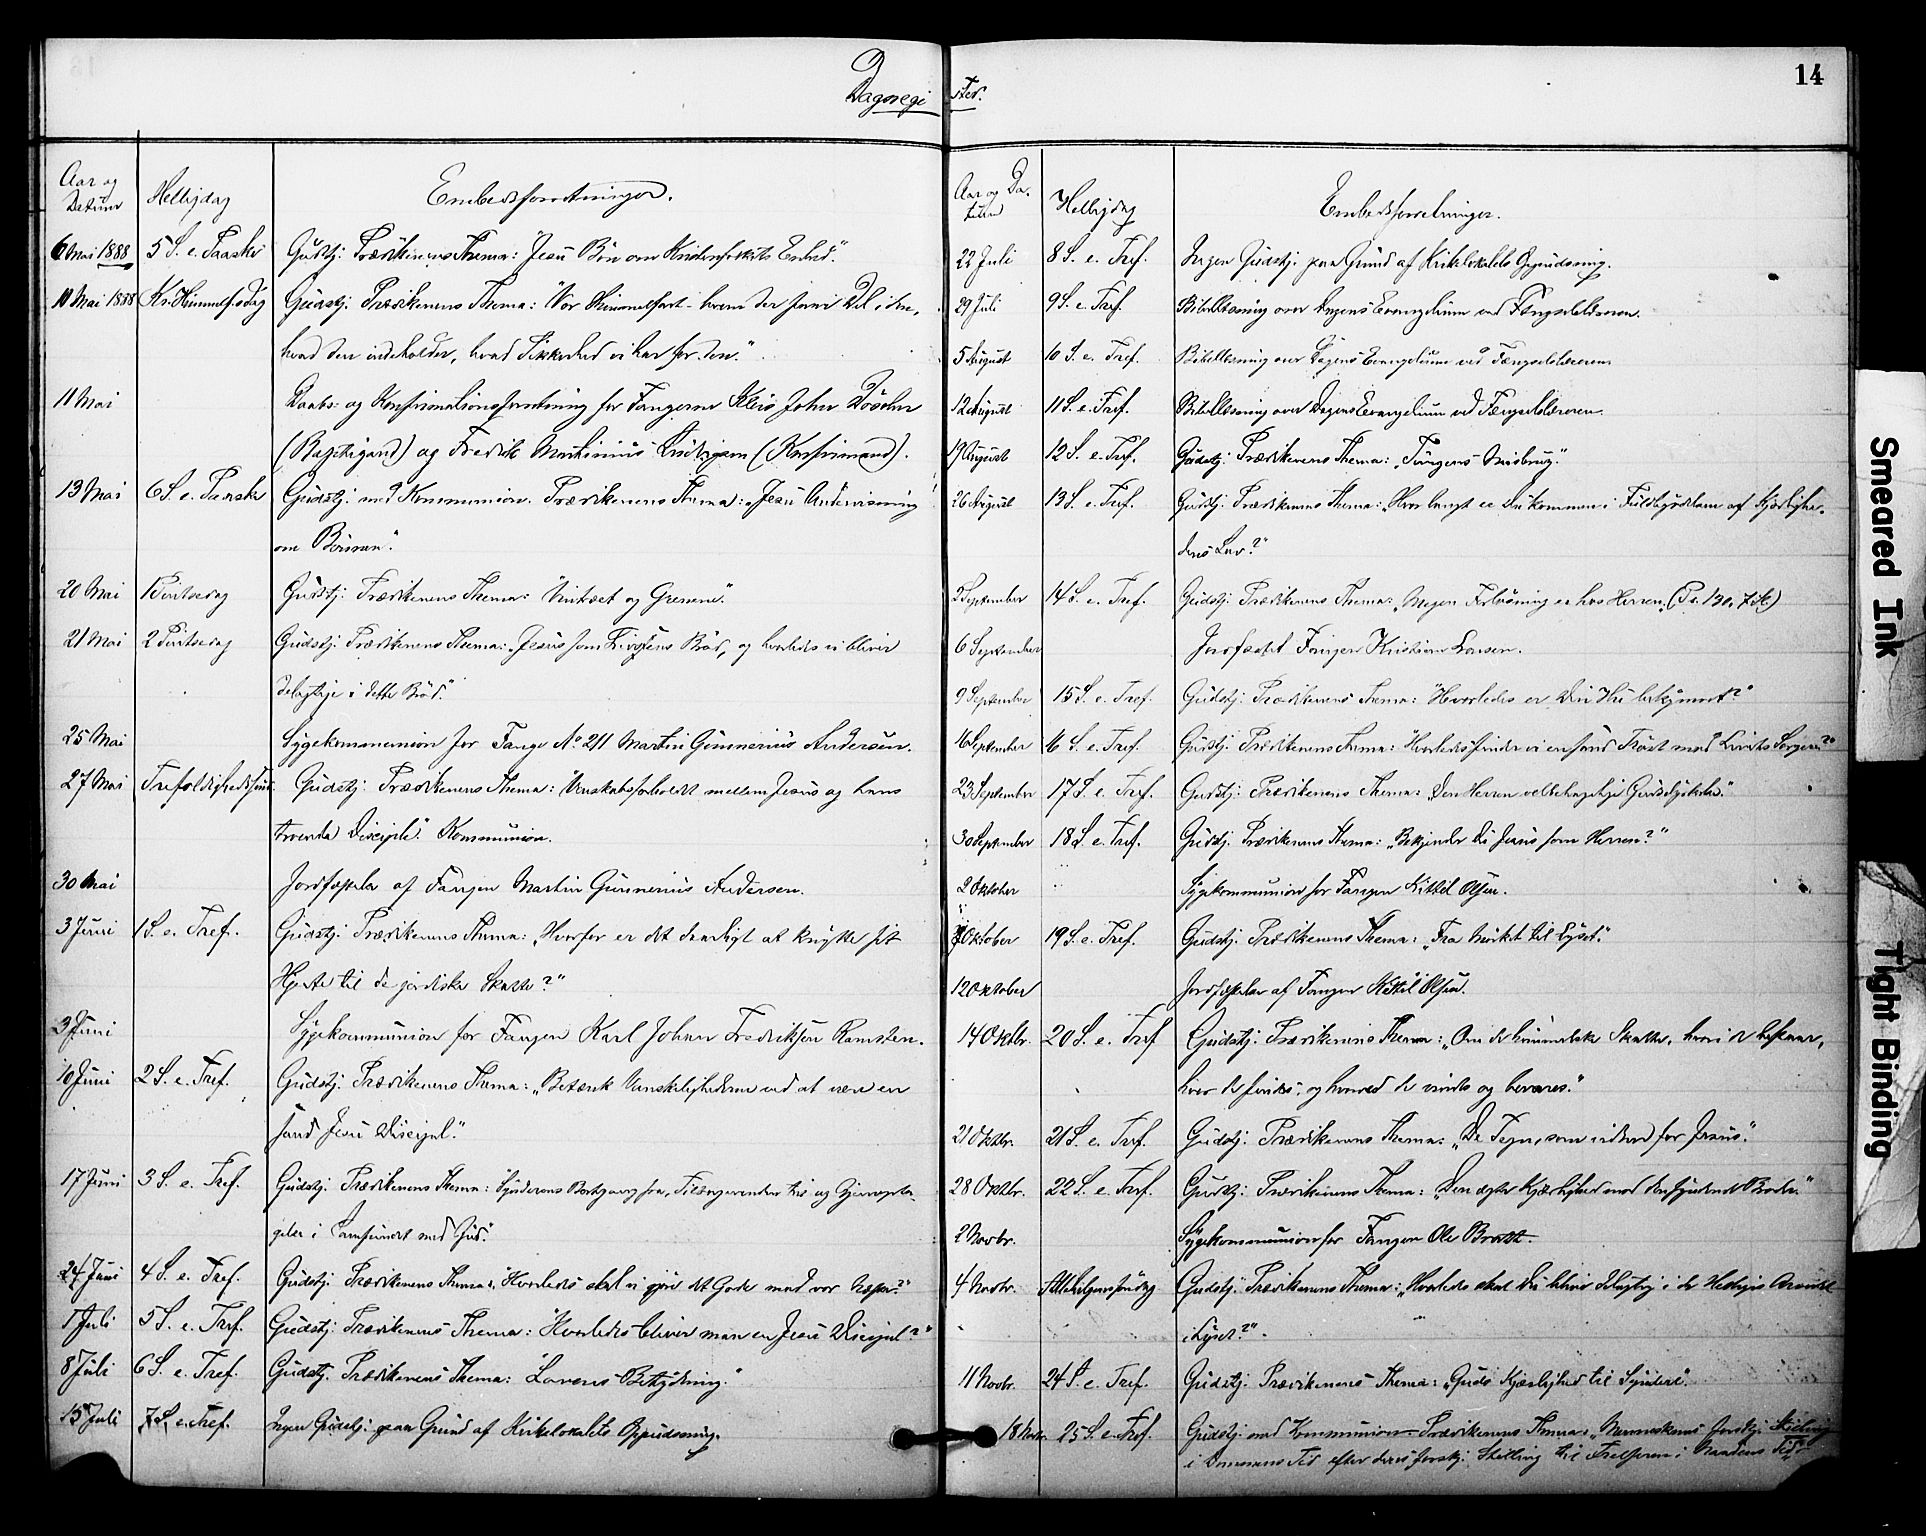 Dagregister.
14
Aar og Datum
Helligdag
Embedsforretninger.
6 Mai 1888 5 S. e. Paaske Gudstj: Prædikenens Thema: "Jesu Bøn om Enhed."
10 Mai 1888 Kr. Himmelfsdag Gudstj: Prædikenens Thema: "Vor Himmelfart – hvem der faar Del i den,
hvad den indeholder, hvad Sikkerhed vi har for den."
11 Mai Daabs- og Konfirmationsforretning for Fangerne John
og Fredrik (Konfirmand).
13 Mai 6 S. e. Paaske Gudstj: med Kommunion. Prædikenens Thema: "Jesu Undervisning
om Bønnen."
20 Mai 1 Pintsedag Gudstj: Prædikenens Thema: "Vintræet og Grenene."
21 Mai 2 Pintsedag Gudstj: Prædikenens Thema: "Jesus som Livsens Brød, og hvorledes vi bliver
delagtige i dette Brød."
25 Mai Sygekommunion for Fange No 211 Martin Gunnerius Andersen.
27 Mai Trefoldighedssønd. Gudstj: Prædikenens Thema: "Venskabsforholdet mellem Jesus og hans
troende Disciple." Kommunion.
30 Mai Jordfæstelse af Fangen Martin Gunnerius Andersen.
3 Juni 1 S. e. Tref. Gudstj: Prædikenens Thema: "Hvorfor er det daarligt at knytte sit
Hjerte til de jordiske Skatte?"
3 Juni Sygekommunion for Fangen Karl Johan Fredriksen Ramsten.
10 Juni 2 S. e. Tref. Gudstj: Prædikenens Thema: "Betænk Vanskelighederne ved at være en
sand Jesu Discipel."
17 Juni 3 S. e. Tref. Gudstj: Prædikenens Thema: "Synderens Bortgang fra, Tilbagevenden til og
i Samfundet med Gud."
24 Juni 4 S. e. Tref. Gudstj: Prædikenens Thema: "Hvorledes skal vi gjøre det Gode mod vor Næste?"
1 Juli 5 S. e. Tref. Gudstj: Prædikenens Thema: "Hvorledes bliver man en Jesu Discipel?"
8 Juli 6 S. e. Tref. Gudstj: Prædikenens Thema: "Lovens Betydning."
15 Juli 7 S. e. Tref. Ingen Gudstj: paa Grund af Kirkelokalets Oppudsning.
Aar og Datum
Helligdag
Embedsforretninger.
22 Juli 8 S. e. Tref. Ingen Gudstj: paa Grund af Kirkelokalets Oppudsning.
29 Juli 9 S. e. Tref. Bibellæsning over Dagens Evangelium ved Fængselslæreren.
5 August 10 S. e. Tref. Bibellæsning over Dagens Evangelium ved Fængselslæreren.
12 August 11 S. e. Tref. Bibellæsning over Dagens Evangelium ved Fængselslæreren.
19 August 12 S. e. Tref. Gudstj: Prædikenens Thema: "Tungens Misbrug."
26 August 13 S. e. Tref. Gudstj: Prædikenens Thema: "Hvor langt er Du kommen i Fuldbyrdelsen af Kjærlighe-
dens Lov?"
2 September 14 S. e. Tref. Gudstj: Prædikenens Thema: "Megen Forløsning er hos Herren." (Ps. 130, 7 )
6 September Jordfæstet Fangen Kristian Larsen.
9 September 15 S. e. Tref. Gudstj: Prædikenens Thema: "Hvorledes er Du bekymret?"
16 September 16 S. e. Tref. Gudstj: Prædikenens Thema: "Hvorledes finder vi en sand Trøst mod Livets Sorger?"
23 September 17 S. e. Tref. Gudstj: Prædikenens Thema: "Den Herren velbehagelige Gudsdyrkelse."
30 September 18 S. e. Tref. Gudstj: Prædikenens Thema: "Bekjender Du Jesus som Herren?"
2 Oktober Sygekommunion for Fangen Kittil Olsen.
7 Oktober 19 S. e. Tref. Gudstj: Prædikenens Thema: "Fra Mørket til Lyset."
12 Oktober Jordfæstelse af Fangen Kittil Olsen.
14 Oktbr. 20 S. e. Tref Gudstj: Prædikenens Thema: "Om de himmelske Skatte, hvori de bestaar,
hvor de findes, og hvorved de vindes og bevares."
21 Oktbr. 21 S. e. Tref. Gudstj: Prædikenens Thema: "De Tegn, som vidner for Jesus."
28 Oktbr. 22 S. e. Tref. Gudstj: Prædikenens Thema: "Den ægte Kjærlighed mod den syndende Broder."
2 Novbr. Sygekommunion for Fangen Ole Bratt.
4 Novbr. Allehelgensøndag Gudstj: Prædikenens Thema: "Hvorledes skal Du blive delagtig i de Helliges Arvedel
i Lyset?"
11 Novbr. 24 S. e. Tref. Gudstj: Prædikenens Thema: "Guds Kjærlighed til Syndere."
18 Novbr. 25 S. e. Tref. Gudstj: med Kommunion Prædikenens Thema: "Menneskenes forskj: Stilling
i Dommens Tid efter deres forskj: Stilling til Frelseren i Naadens Tid."
Smeared Ink
Tight Binding